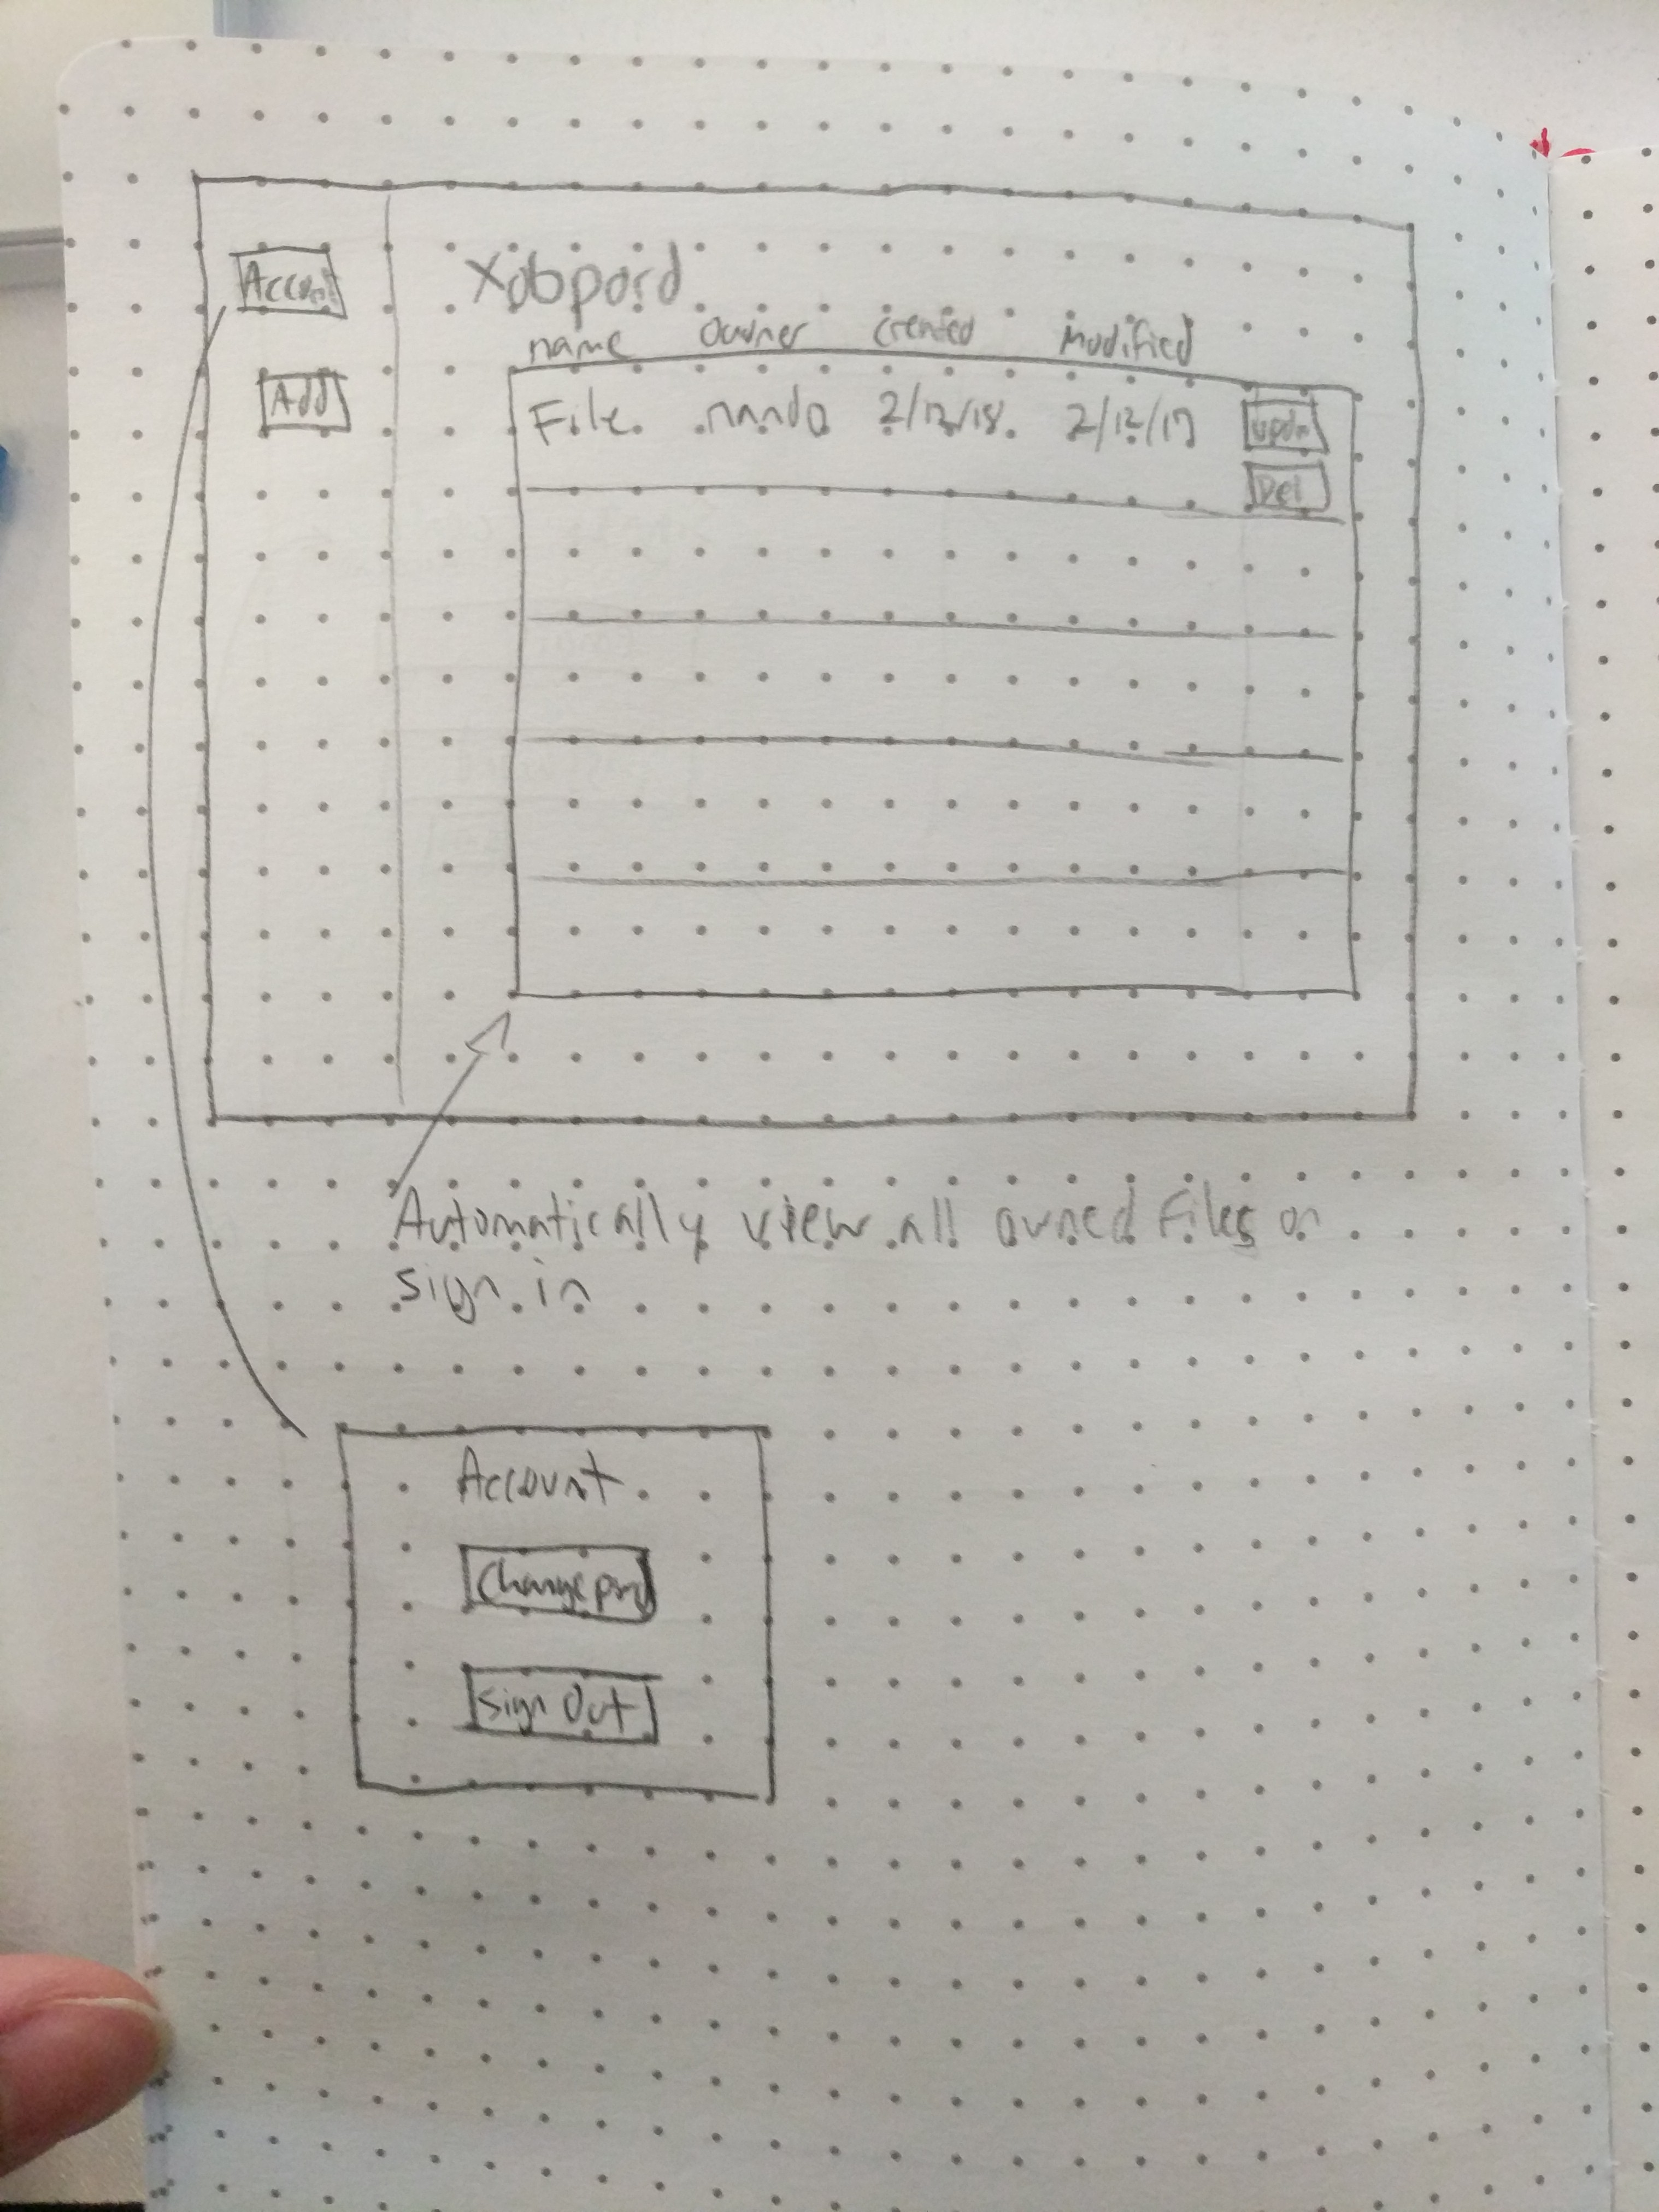 Account
Add
Xobpord
name owner created modified
File nando 2/12/18 2/12/17
Upda
Del
Automatically view all owned files on
sign in
Account
Change pwd
Sign Out